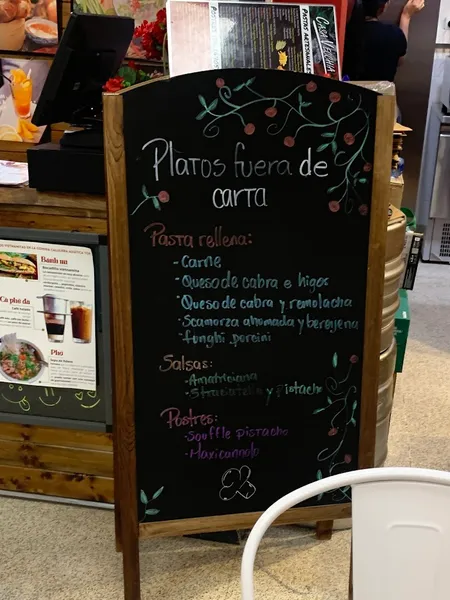 CASA VECCHIA
PASTAS ARTESANALES
Platos fuera de
carta
Pasta rellena:
- Carne
- Queso de cabra e higos
- Queso de cabra y remolacha
- Scamorza ahumada y berenjena
- funghi porcini
Salsas:
- Amatriciana
- Straciatella y pistacho
Postres:
- Souffle pistacho
- Maxicannolo
Banh mi
Ca phe da
Pho